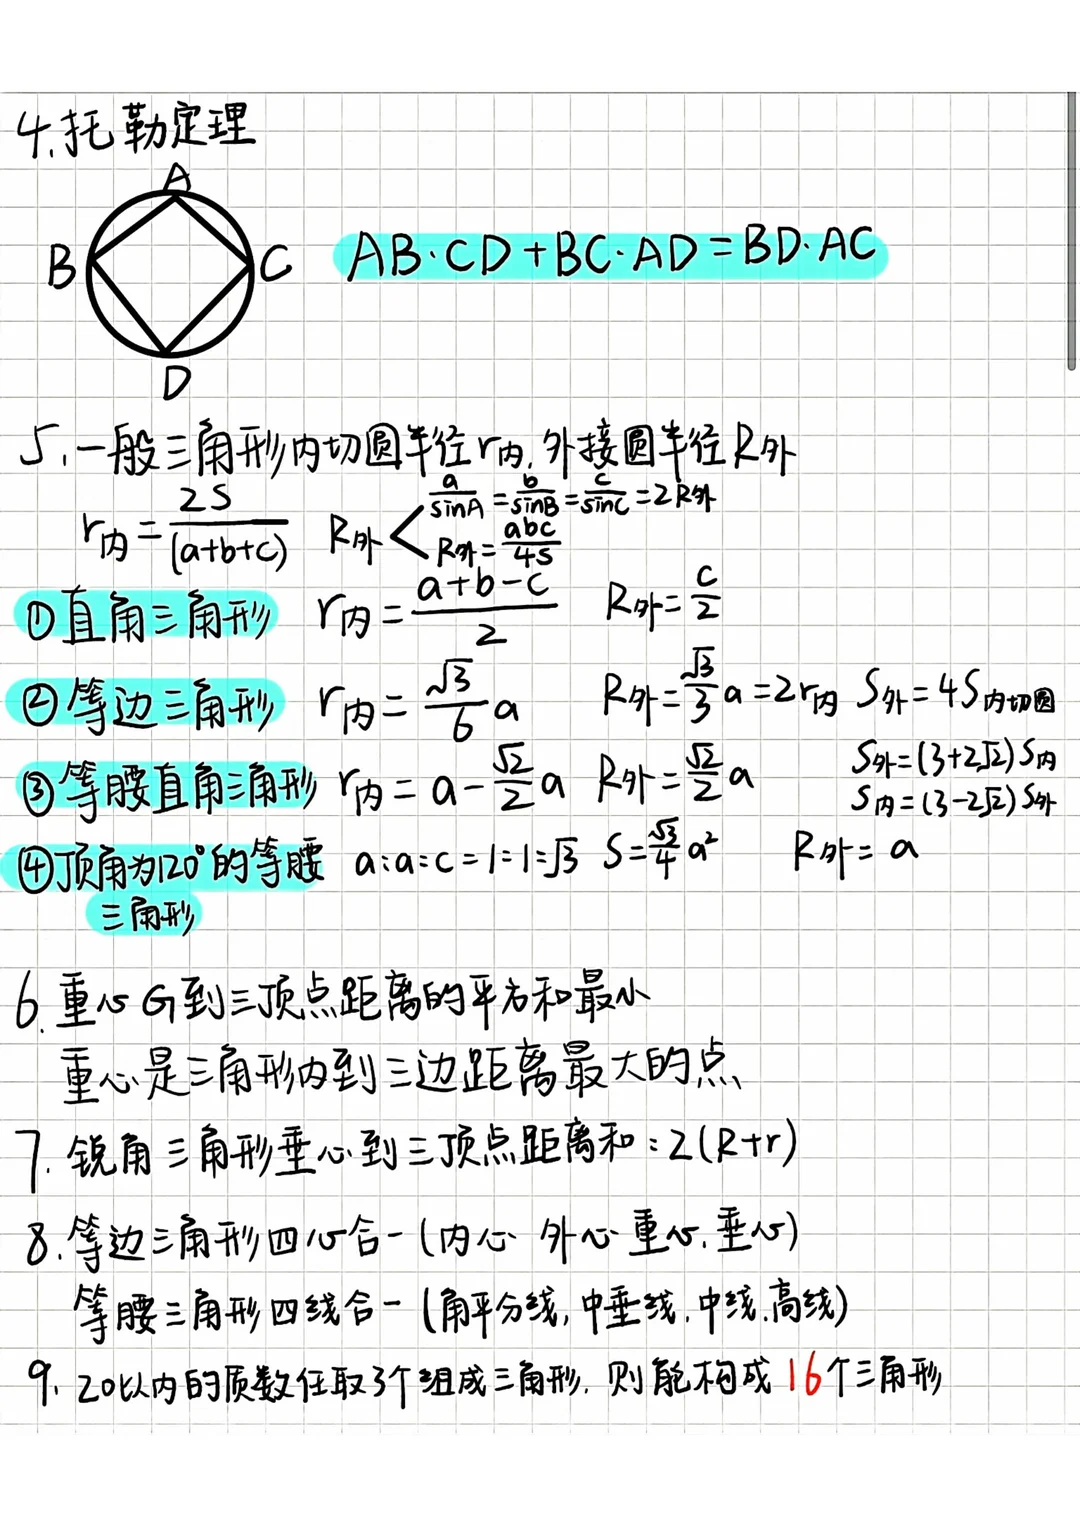 4.托勒定理
A
B
C
AB·CD+BC·AD=BD·AC
D
5.一般三角形内切圆半径r内,外接圆半径R外
r内=2S/(a+b+c) R外< a/sinA=b/sinB=c/sinC=2R外
R外=abc/4S
①直角三角形 r内=(a+b-c)/2 R外=c/2
②等边三角形 r内=√3/6 a R外=√3/3 a=2r内 S外=4S内切圆
③等腰直角三角形 r内=a-√2/2 a R外=√2/2 a S外=(3+2√2)S内
S内=(3-2√2)S外
④顶角为120°的等腰 a:a:c=1:1:√3 S=√3/4 a² R外=a
三角形
6.重心G到三顶点距离的平方和最小
重心是三角形内到三边距离最大的点
7.锐角三角形垂心到三顶点距离和:2(R+r)
8.等边三角形四心合一(内心 外心 重心.垂心)
等腰三角形四线合一(角平分线,中垂线.中线.高线)
9.20以内的质数任取3个组成三角形.则能构成16个三角形